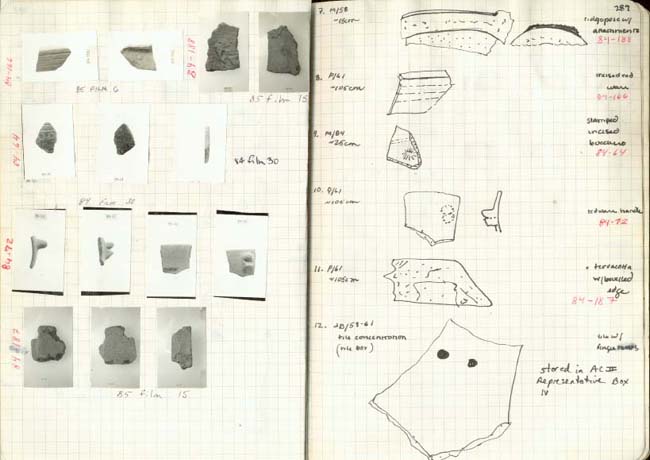 84-166
84-188
85 FILM 6
85 film 15
84-64
84 film 30
84 film 30
84-72
84-187
85 film 15
287
7. M/58
~15cm
ridgepole w/
84-188
8. P/61
~105cm
incised red
ware
84-166
9. M/84
~25cm
stamped
incised
bucchero
84-64
10. P/61
~105cm
redware handle
84-72
11. P/61
~105cm
terracotta
w/bevelled
edge
84-187
12. 59-61
tile concentration
(tile box)
tile w/
stored in AC II
Representative Box
IV